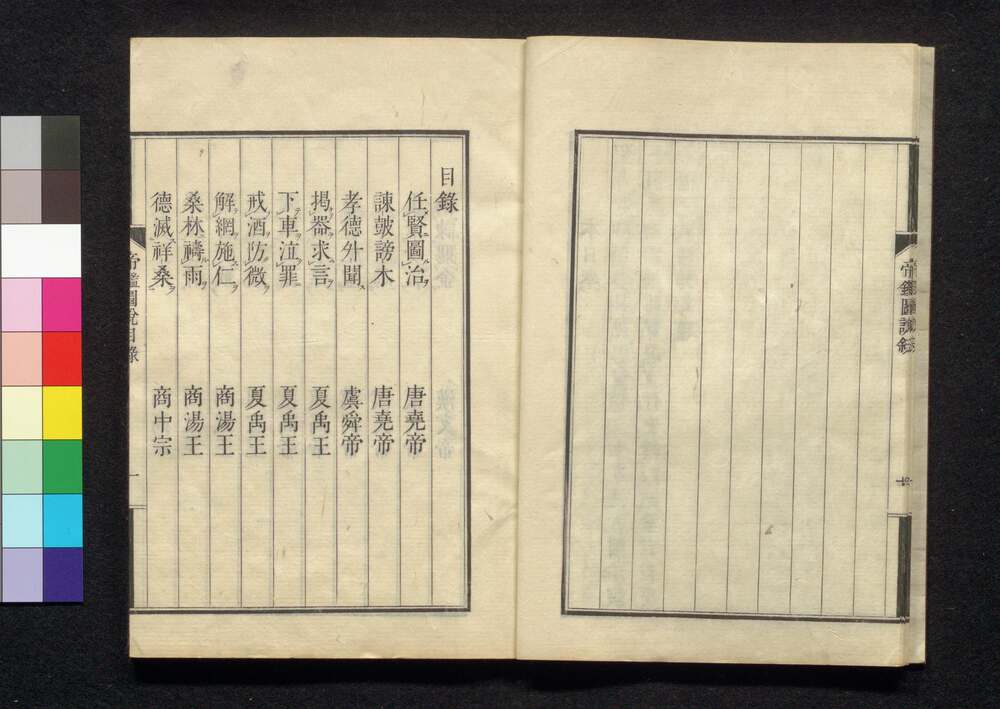 目錄
任賢圖治 唐堯帝
諫皷謗木 唐堯帝
孝德升聞 虞舜帝
揭器求言 夏禹王
下車泣罪 夏禹王
戒酒防微 夏禹王
解網施仁 商湯王
桑林禱雨 商湯王
德滅祥桑 商中宗
帝鑑圖說目錄
一